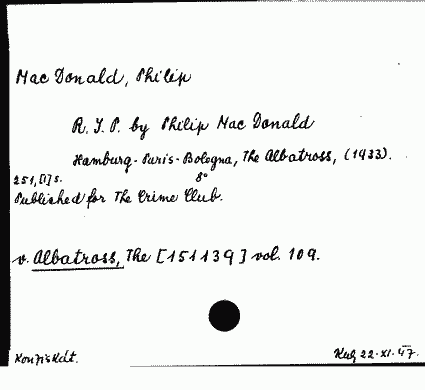 Mac Donald, Philip
R.I.P. by Philip Mac Donald
Hamburg-Paris-Bologna, The Albatross, (1933).
251,[1] s. 8°
Published for The Crime Club.
v. Albatross, The [151139] vol. 109.
Konfiskát.
22.XI.47.